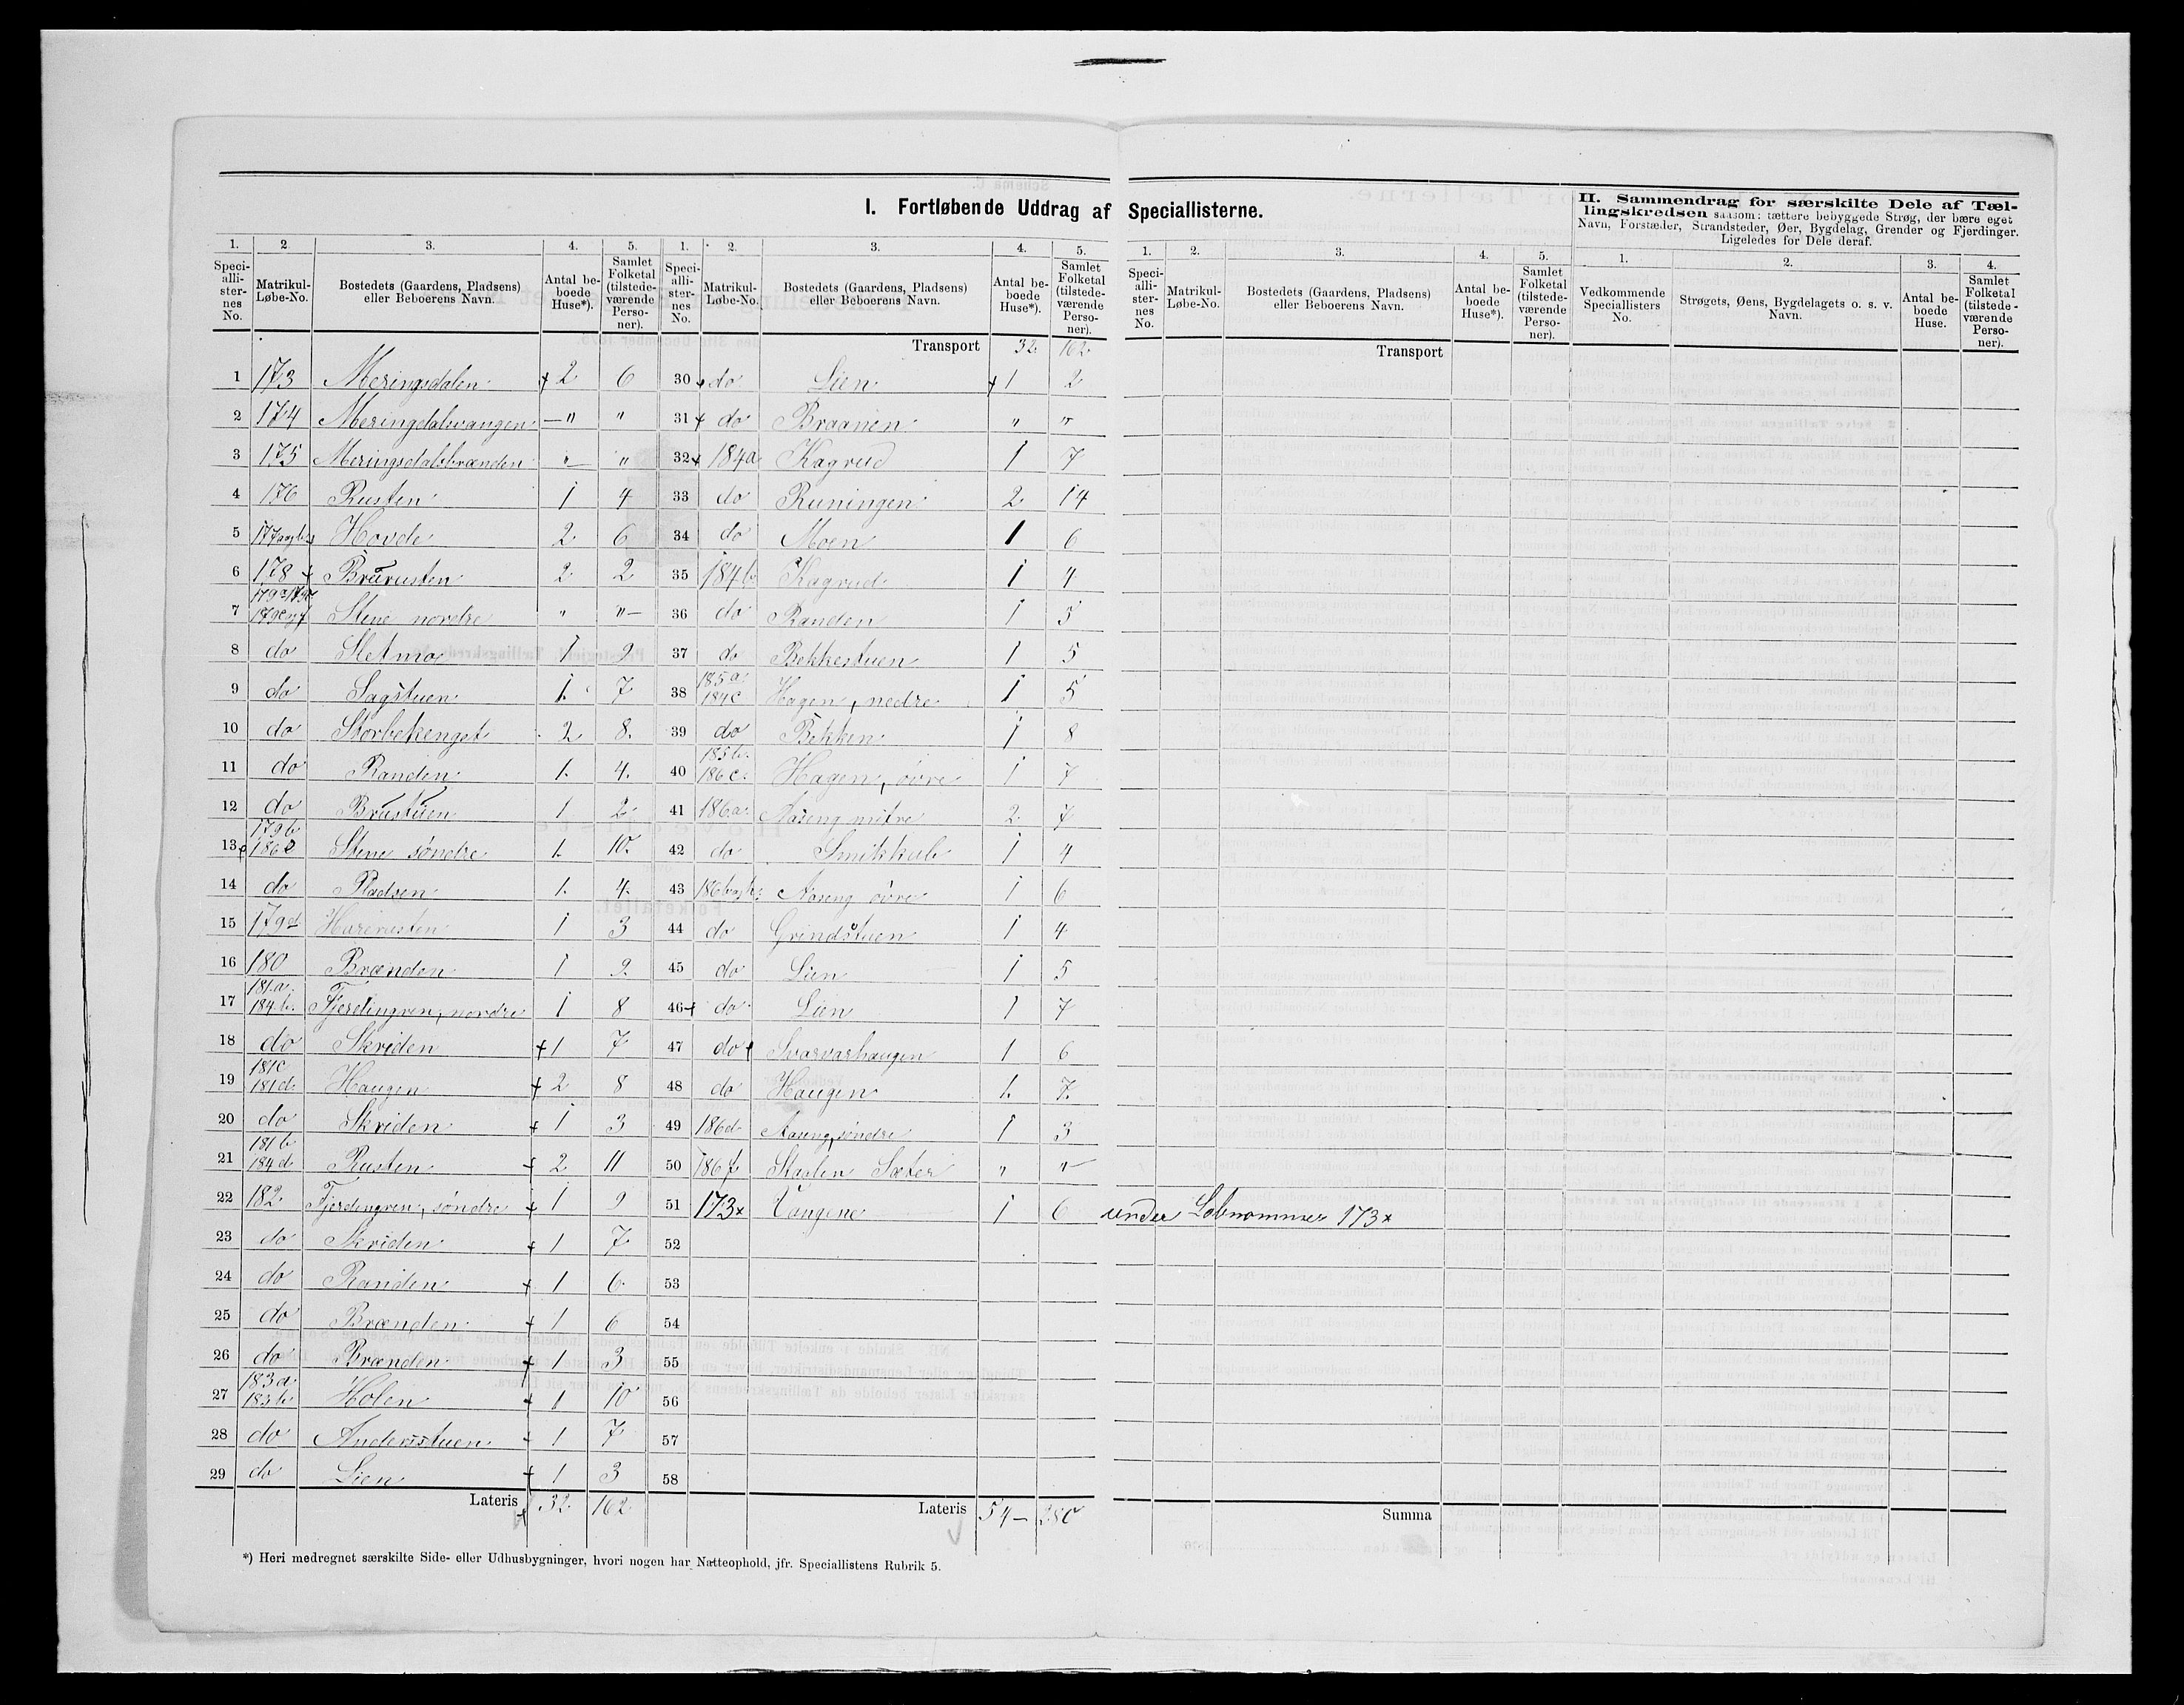 I. Fortløbende Uddrag af Speciallisterne.
II. Sammendrag for særskilte Dele af Tæl-
lingskredsen saasom: tættere bebyggede Strøg, der bære eget
Navn, Forstæder, Strandsteder, Øer, Bygdelag, Grender og Fjerdinger.
Ligeledes for Dele deraf.
1. 2. 3. 4. 5. 1. 2. 3. 4. 5. 1. 2. 3. 4. 5. 1. 2. 3. 4.
Speci-alli-ster-nes No. Matrikul-Løbe-No. Bostedets (Gaardens, Pladsens) eller Beboerens Navn. Antal be-boede Huse*). Samlet Folketal (tilstede-værende Perso-ner).
Speci-alli-ster-nes No. Matrikul-Løbe-No. Bostedets (Gaardens, Pladsens) eller Beboerens Navn. Antal be-boede Huse*). Samlet Folketal (tilstede-værende Perso-ner).
Speci-alli-ster-nes No. Matrikul-Løbe-No. Bostedets (Gaardens, Pladsens) eller Beboerens Navn. Antal be-boede Huse*). Samlet Folketal (tilstede-værende Perso-ner).
Vedkommende Speciallisters No. Strøgets, Øens, Bygdelagets o. s. v. Navn. Antal be-boede Huse. Samlet Folketal (tilstede-værende Perso-ner).
1 173 Meringsdalen + 2 6
2 174 Meringdalsvangen — " "
3 175 Meringsdalsbrænden " "
4 176 Rusten 1 4
5 Hovde 2 6
6 178 + Brurusten 2 2
7 Stene nordre " "
8 do Sletmo 1 2
9 do Sagstuen 1. 7
10 do Storbekenget 2 8.
11 do Randen 1. 4.
12 do Brustuen 1 2
13 179b Stene søndre 1. 10.
14 do Pladsen 1. 4.
15 179d Harerusten 1 3
16 180 Brænden 1 9.
17 181.a. 184.b. Fjerdingren, nordre 1 8
18 do Skriden + 1 7
19 181c 181d. Haugen + 2 8
20 do Skriden + 1 3
21 181b 184d Rusten + 2 11
22 182. Fjerdingren, søndre + 1 9
23 do Skriden + 1 7
24 do Randen + 1 6.
25 do Brænden + 1 6
26 do Brænden + 1 3
27 183a 183b Holen + 1 10
28 do Anderstuen + 1 7
29 do Lien + 1 3
Lateris 32. 162
Transport 32. 162.
30 do Lien + 1 2
31 + do Braanen " "
32 + 184a Kagrud 1 7
33 do Runingen 2. 14
34 do Moen 1 6
35 184b. Kagrud 1 4
36 do Randen 1 5
37 do Bekkestuen 1 5
38 185.a. 184c Hagen, nedre 1 5
39 do Bekken 1 8
40 185b. 186c. Hagen, øvre 1 7
41 186.a. Aaseng mitre 2. 7
42 do 1 4
43 Aaseng øvre 1 6
44 do Grindstuen 1 4
45 do Lien 1 5
46 + do Lien 1 7
47 do + Svarvarhaugen 1 6
48 do Haugen 1. 7.
49 186d. Aaseng, søndre 1 3
50 186f. Sæter " "
51 173x Vangene 1 6 under Løbnommer 173x
52
53
54
55
56
57
58
Lateris 54 — 280
Transport
Summa
*) Heri medregnet særskilte Side- eller Udhusbygninger, hvori nogen har Natteophold, jfr. Speciallistens Rubrik 5.